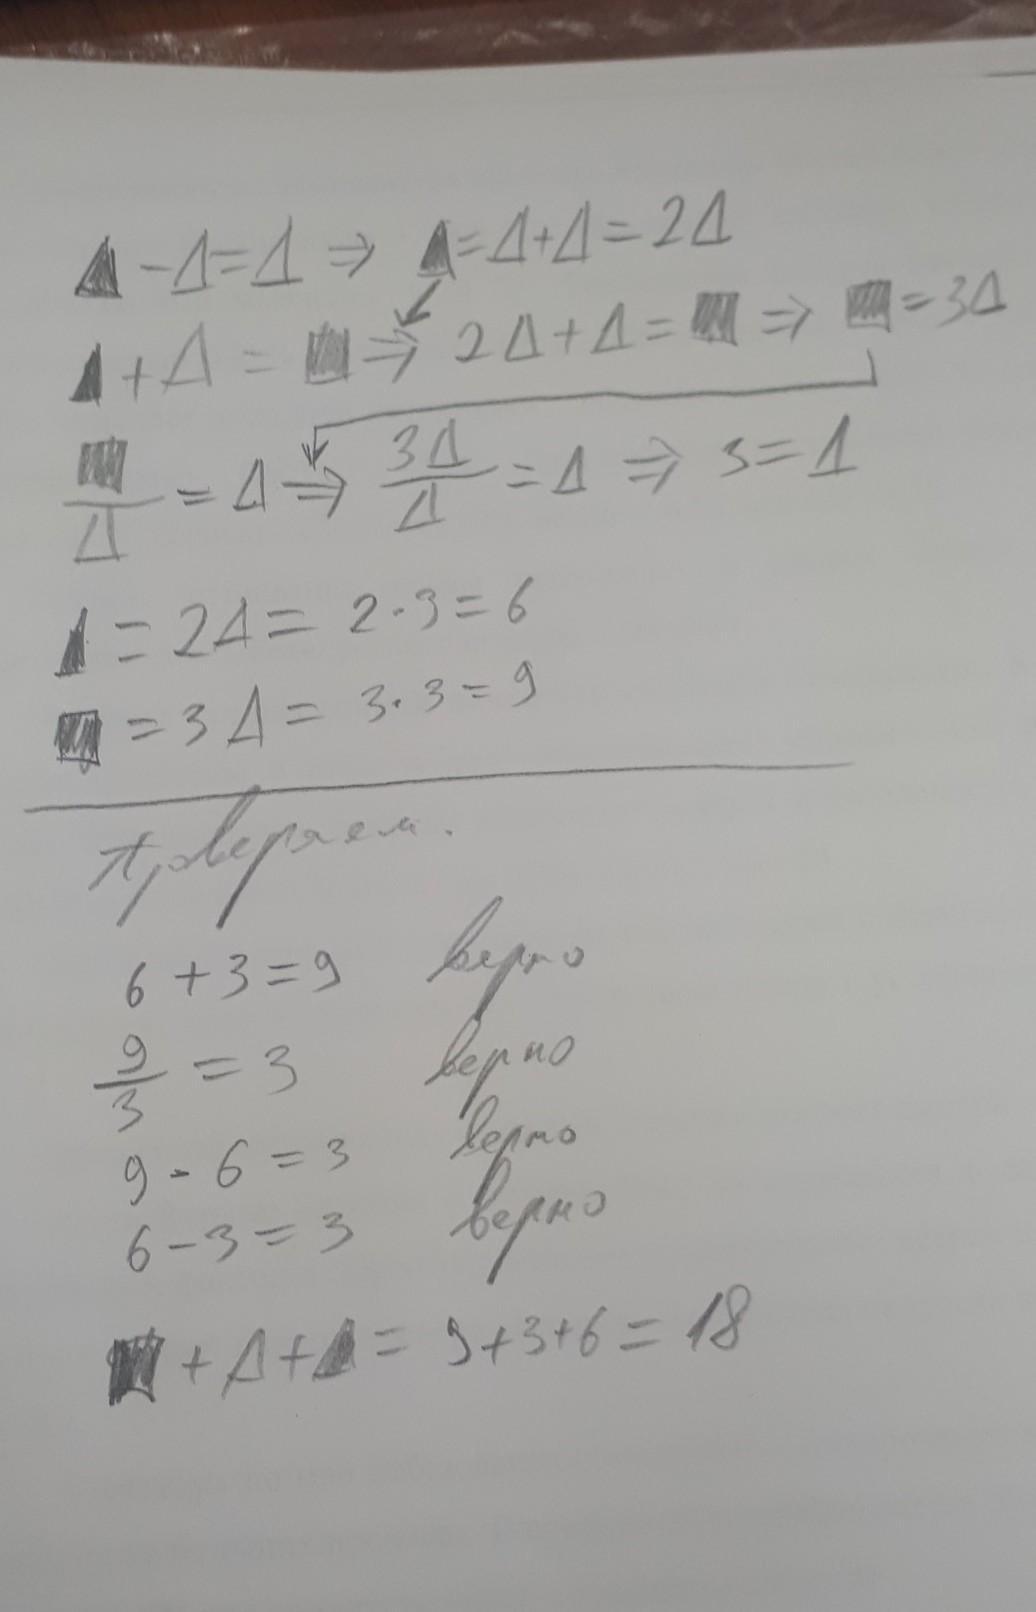 ▲ - Δ = Δ ⇒ ▲ = Δ + Δ = 2Δ
▲ + Δ = ■ ⇒ 2Δ + Δ = ■ ⇒ ■ = 3Δ
■/Δ = Δ ⇒ 3Δ/Δ = Δ ⇒ 3 = Δ
▲ = 2Δ = 2·3 = 6
■ = 3Δ = 3·3 = 9
Проверяем.
6 + 3 = 9 верно
9/3 = 3 верно
9 - 6 = 3 верно
6 - 3 = 3 верно
■ + Δ + ▲ = 9 + 3 + 6 = 18